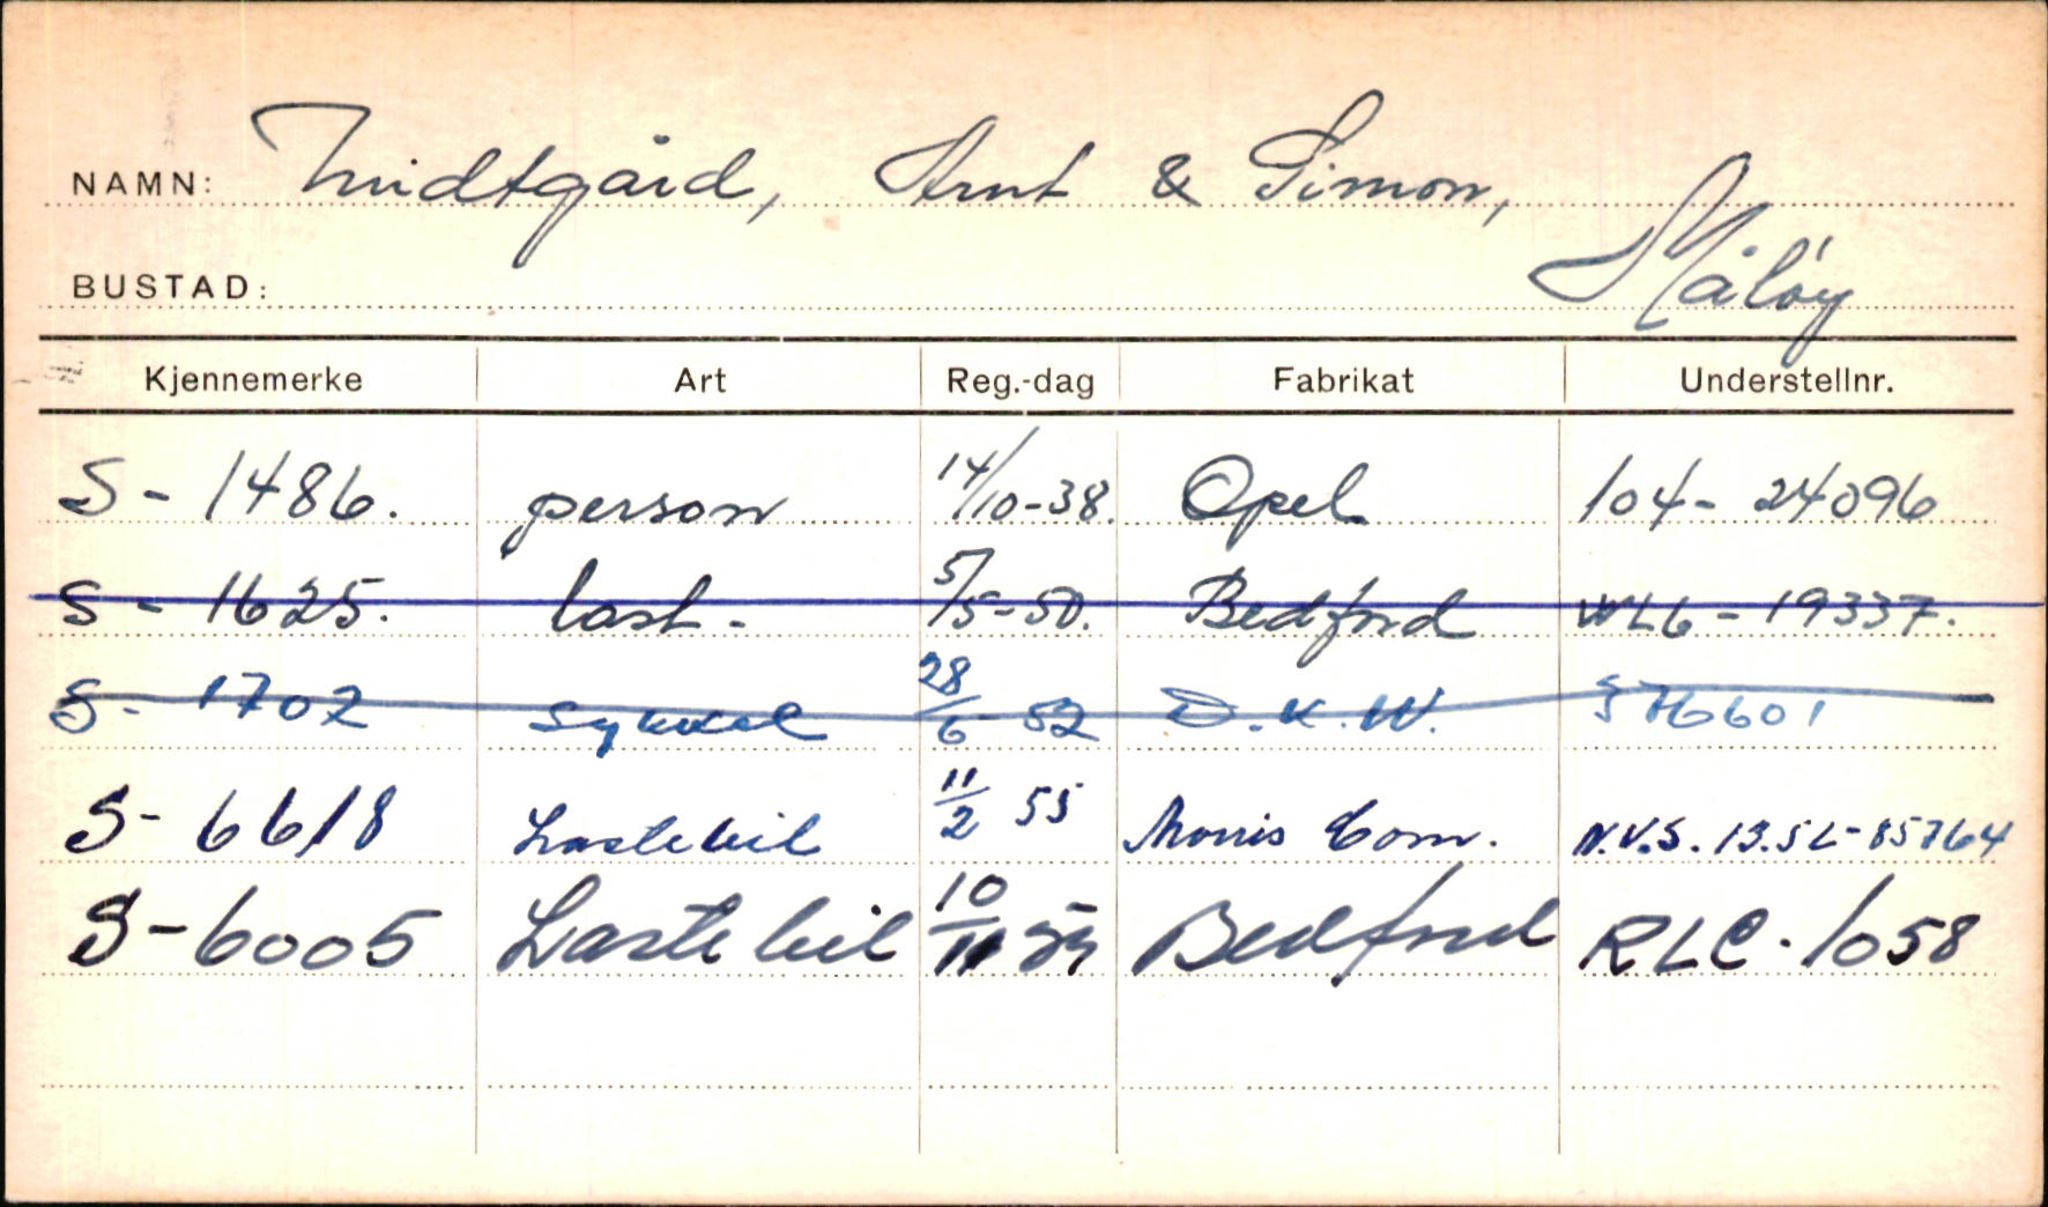 NAMN: Midtgård, Arnt & Simon,
BUSTAD: Måløy
Kjennemerke Art Reg.-dag Fabrikat Understellnr.
S - 1486. person 14/10-38. Opel 104- 24096
S - 1625. last - 5/5-50. Bedford WL6 - 19337.
S - 1702 sykkel 28/6 52 D.K.W. 576601
S - 6618 Lastebil 11/2 55 Morris Com. N.V.S. 13.5L-85764
S - 6005 Lastebil 10/11 Bedford RLC - 1058